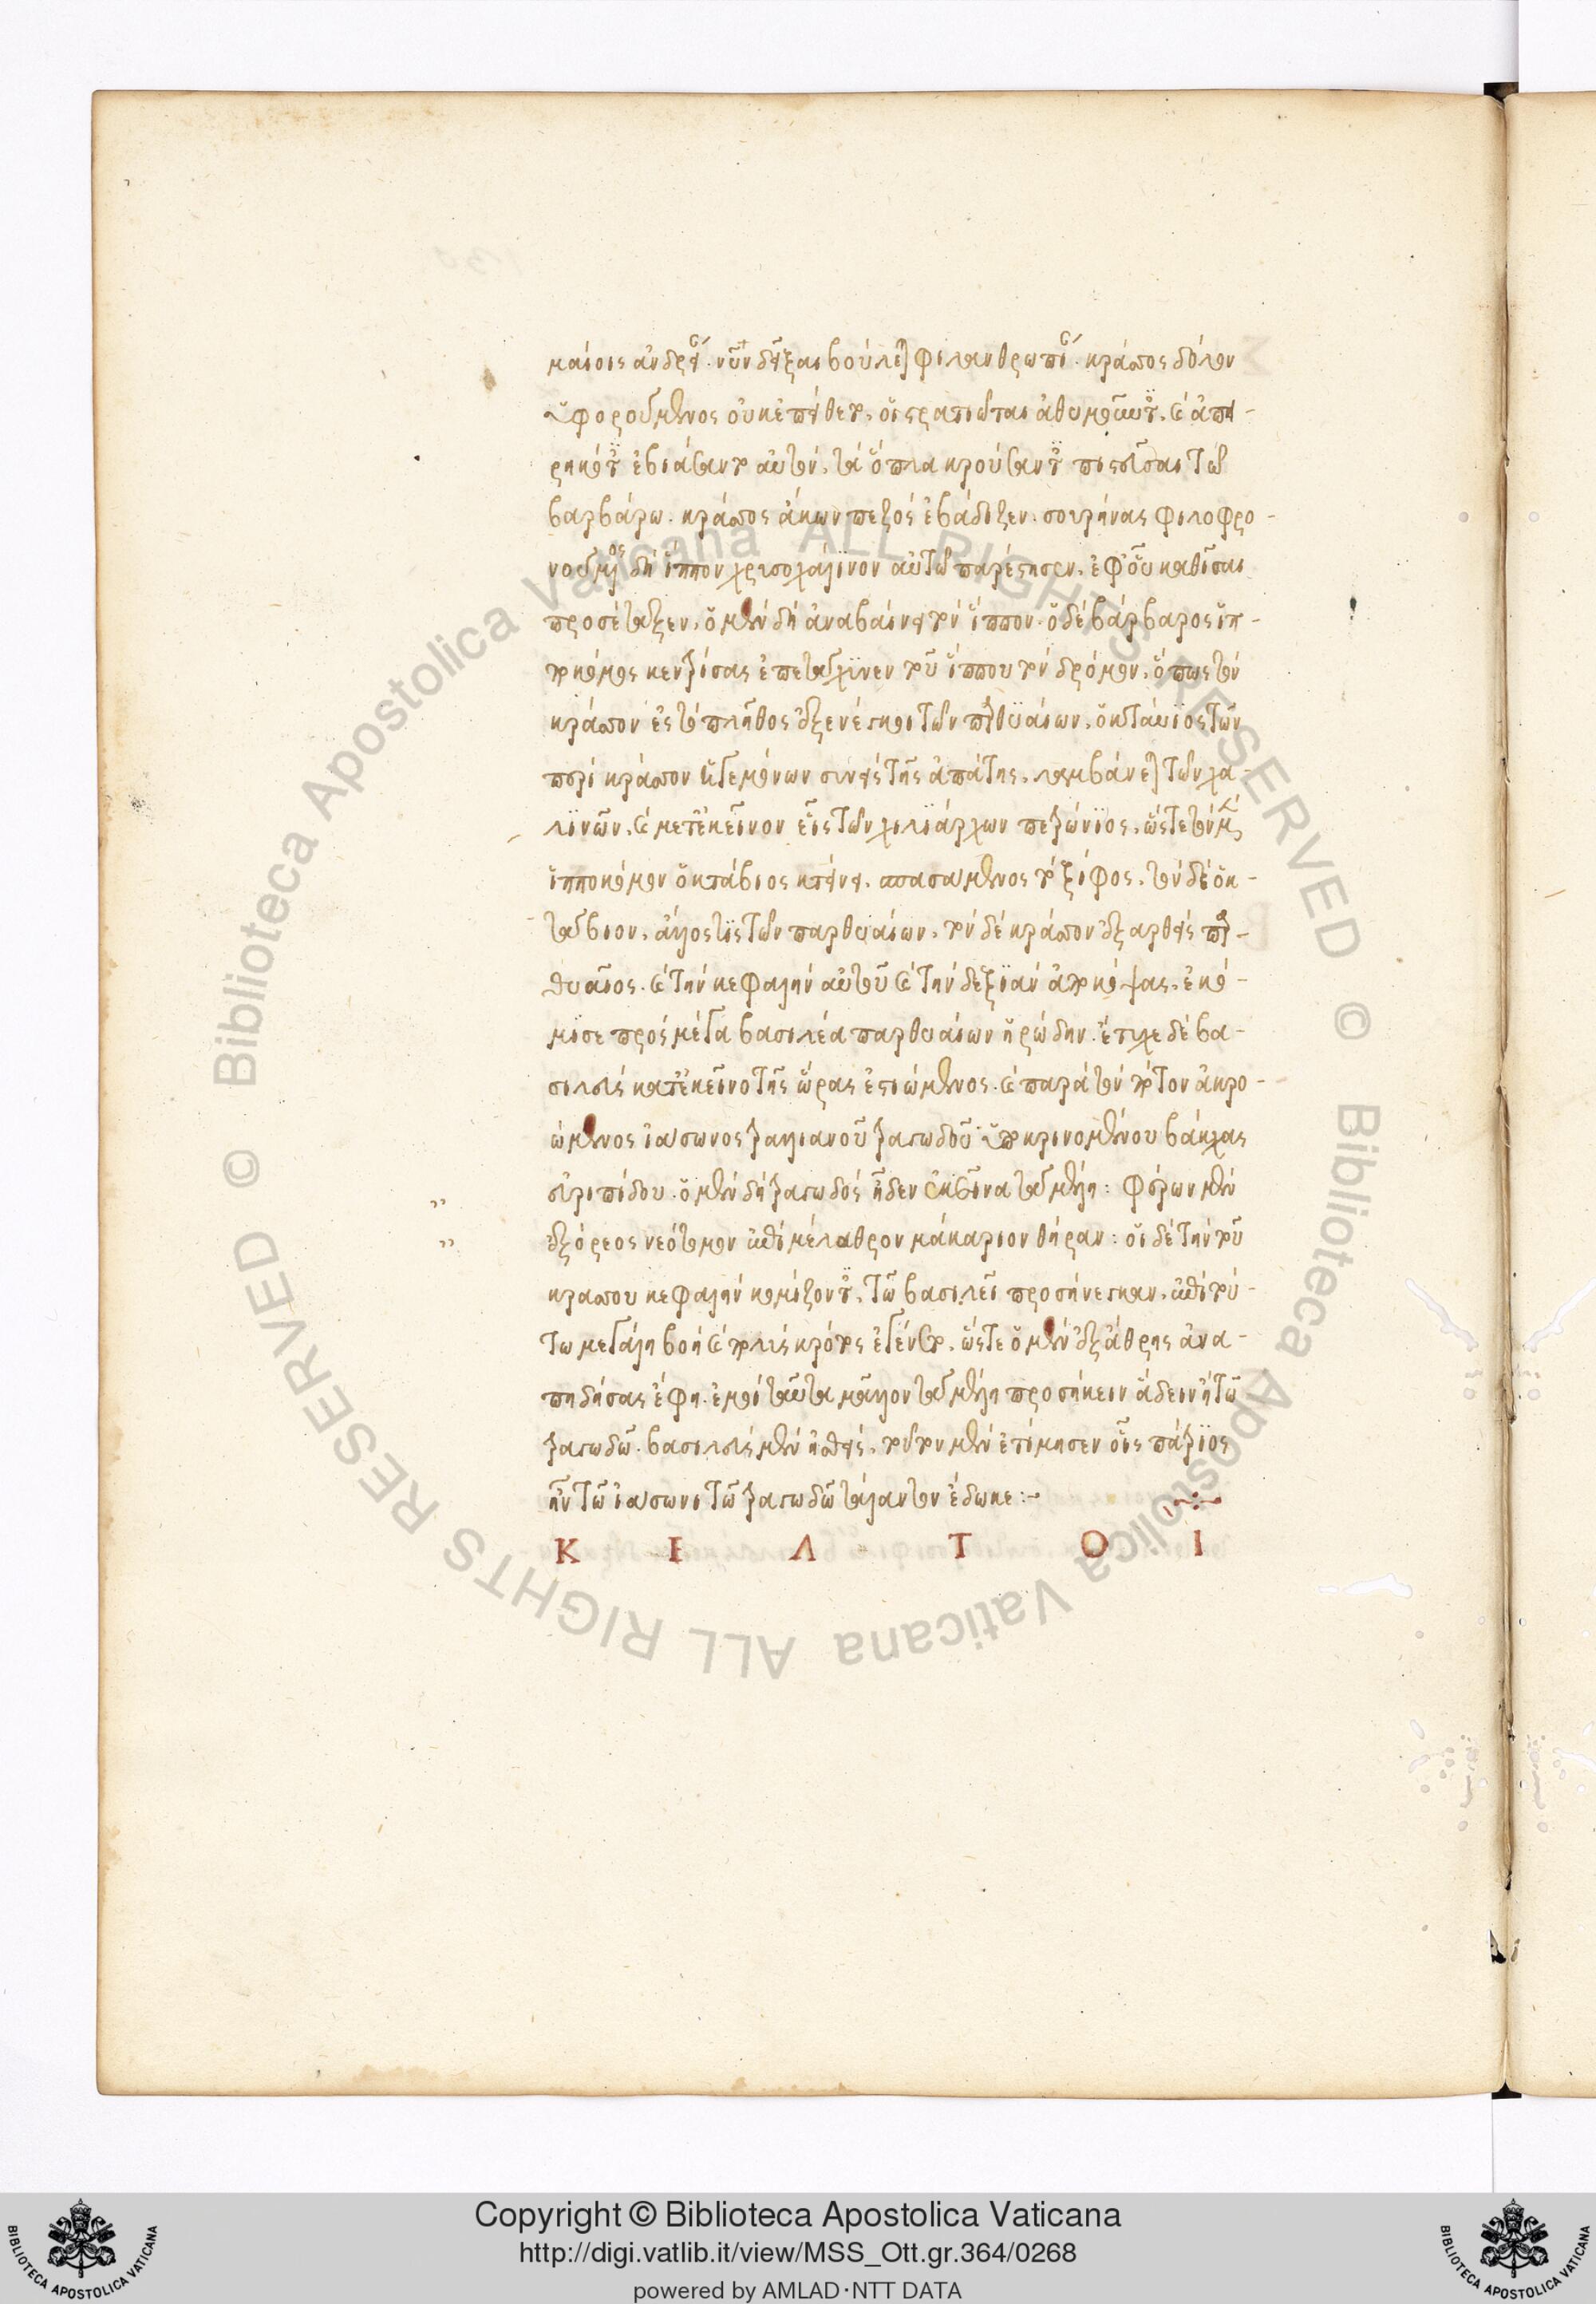 μαίοις ἀνδρείας. νῦν δεῖξαι βούλεται φιλανθρωπίας. κράσσος δόλον
ὑφορούμενος οὐκ ἐπείθετο. οἱ στρατιῶται ἀθυμοῦντες, καὶ ἀπει-
ρηκότες ἐβιάσαντο αὐτόν, τὰ ὅπλα κρούσαντες πιστεῦσαι τῷ
βαρβάρῳ. κράσσος ἄκων πεζὸς ἐβάδιζεν. σουρήνας φιλοφρο-
νούμενος δὴ ἵππον χρυσοχάλινον αὐτῷ παρέστησεν. ἐφ' οὗ καθίσαι
προσέταξεν. ὁ μὲν δὴ ἀναβαίνει τὸν ἵππον. ὁ δὲ βάρβαρος ἱπ-
ποκόμος κεντρίσας ἐπετάχυνεν τοῦ ἵππου τὸν δρόμον, ὅπως τὸν
κράσσον ἐς τὸ πλῆθος ἐξενέγκοι τῶν παρθυαίων. ὀκτάυιος τῶν
περὶ κράσσον ἡγεμόνων συνεὶς τῆς ἀπάτης, λαμβάνεται τῶν χα-
λινῶν, καὶ μετ' ἐκεῖνον εἷς τῶν χιλιάρχων πετρώνιος, ὥστε τὸν μὲν
ἱπποκόμον ὀκτάβιος κτείνει, σπασάμενος τὸ ξίφος. τὸν δὲ ὀκ-
τάβιον, ἄλλος τις τῶν παρθυαίων. τὸν δὲ κράσσον ἐξαρθεὶς παρ-
θυαῖος. καὶ τὴν κεφαλὴν αὐτοῦ καὶ τὴν δεξιὰν ἀποκόψας, ἐκό-
μισε πρὸς μέγα βασιλέα παρθυαίων ἡρώδην. ἔτυχε δὲ βα-
σιλεὺς κατ' ἐκεῖνο τῆς ὥρας ἑστιώμενος. καὶ παρὰ τὸν πότον ἀκρο-
ώμενος ἰάσωνος τραλλιανοῦ τραγωδοῦ ὑποκρινομένου βάκχας
εὐριπίδου. ὁ μὲν δὴ τραγωδὸς ᾖδεν ἐκεῖνα τὰ μέλη: φέρων μὲν
ἐξ ὄρεος νεότομον ἐπὶ μέλαθρον μακάριον θήραν: οἱ δὲ τὴν τοῦ
κράσσου κεφαλὴν κομίζοντες, τῷ βασιλεῖ προσήνεγκαν. ἐπὶ τού-
τω μεγάλη βοὴ καὶ πολὺς κρότος ἐγένετο, ὥστε ὁ μὲν ἐξάθρης ἀνα-
πηδήσας ἔφη. ἐμοὶ ταῦτα μᾶλλον τὰ μέλη προσήκειν ἄδειν ἢ τῷ
τραγωδῷ. βασιλεὺς μὲν ἡσθεὶς, τοῦτον μὲν ἐτίμησεν οἷς πάτριος
ἦν τῷ ἰάσωνι τῷ τραγωδῷ τάλαντον ἔδωκε:~
Κ Ε Λ Τ Ο Ι
Copyright © Biblioteca Apostolica Vaticana
http://digi.vatlib.it/view/MSS_Ott.gr.364/0268
powered by AMLAD·NTT DATA
© Biblioteca Apostolica Vaticana ALL RIGHTS RESERVED
© Biblioteca Apostolica Vaticana ALL RIGHTS RESERVED
BIBLIOTECA APOSTOLICA VATICANA
BIBLIOTECA APOSTOLICA VATICANA